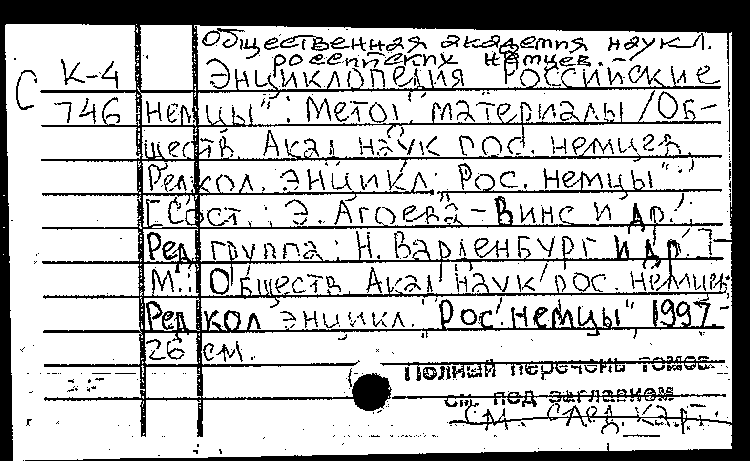 Общественная академия наук л.
российских немцев.
С К-4 Энциклопедия "Российские
746 немцы" : Метод. материалы / Об-
ществ. Акад. наук рос. немцев.
Редкол. энцикл. "Рос. немцы" ;
[Сост.: Э. Агоева-Винс и др. ;
Ред. группа: Н. Варденбург и др.] -
М.: Обществ. Акад. наук рос. немцев:
Редкол. энцикл. "Рос. немцы", 1997. -
26 см.
Полный перечень томов
см. под заглавием
См. след. карт.